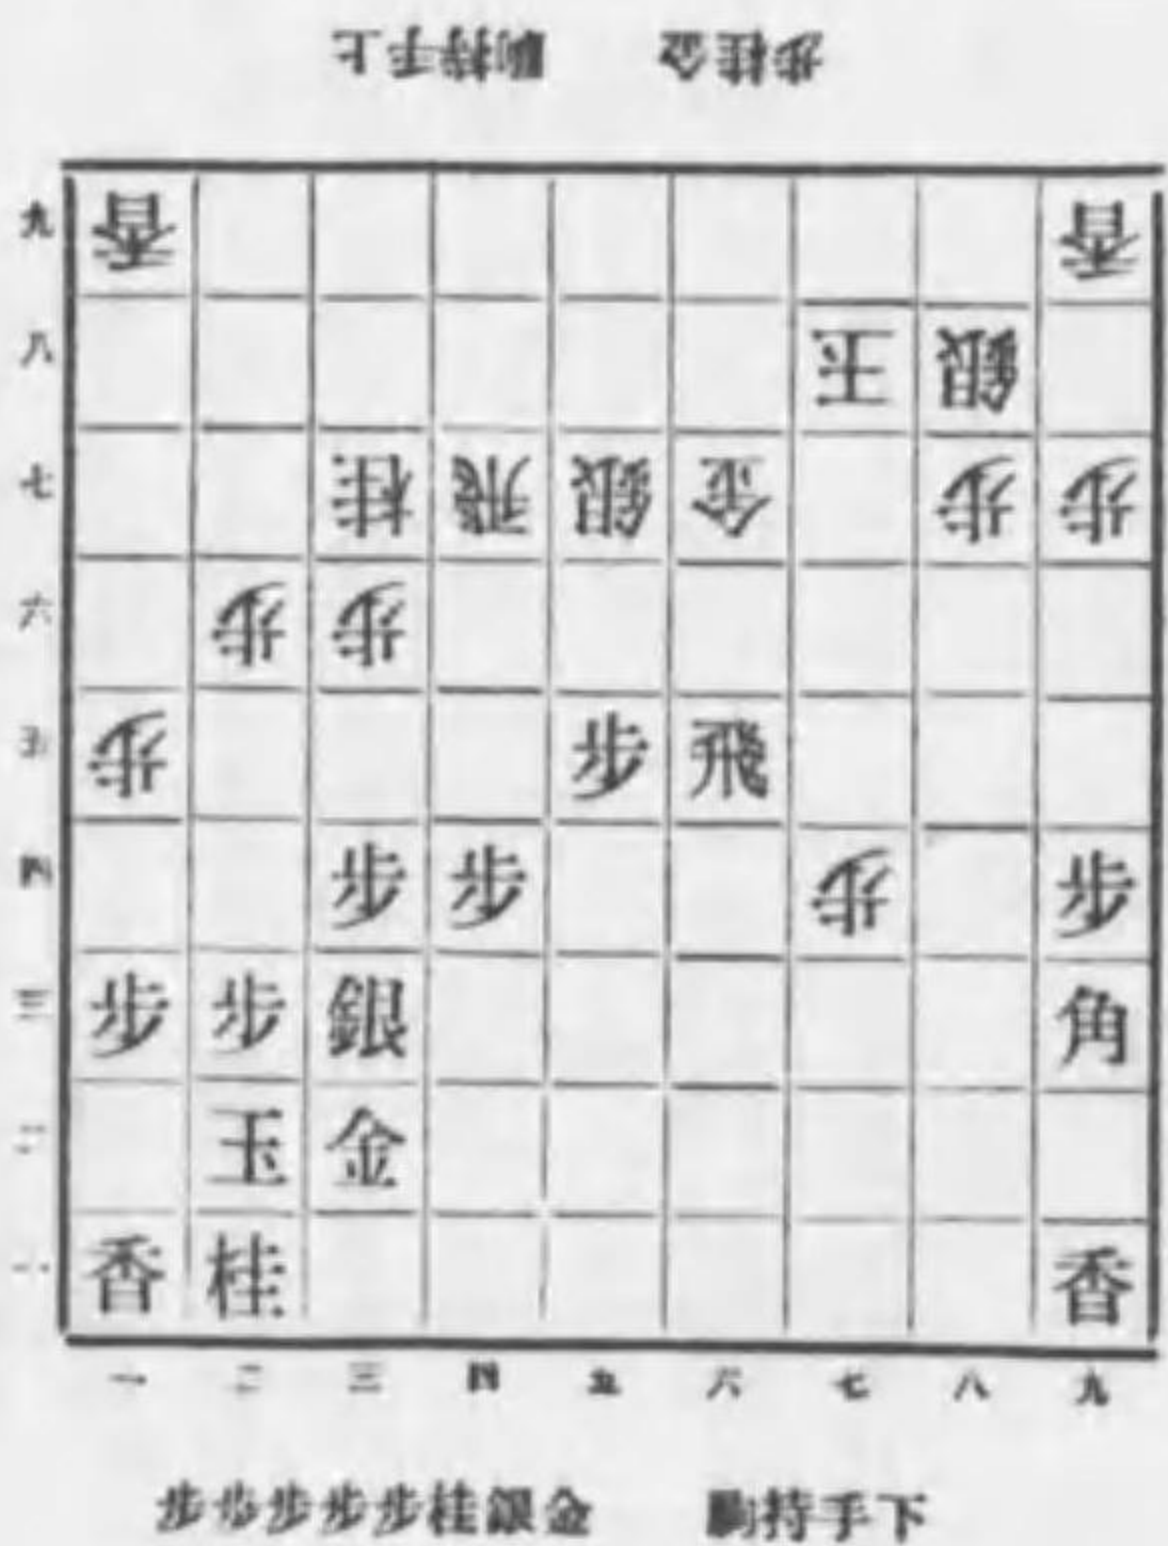 上手持駒 金桂歩
九 香 香
八 王 銀
七 桂 飛 銀 金 歩 歩
六 歩 歩
五 歩 歩 飛
四 歩 歩 歩 歩
三 歩 歩 銀 角
二 玉 金
一 香 桂 香
一 二 三 四 五 六 七 八 九
歩歩歩歩歩桂銀金 駒持手下